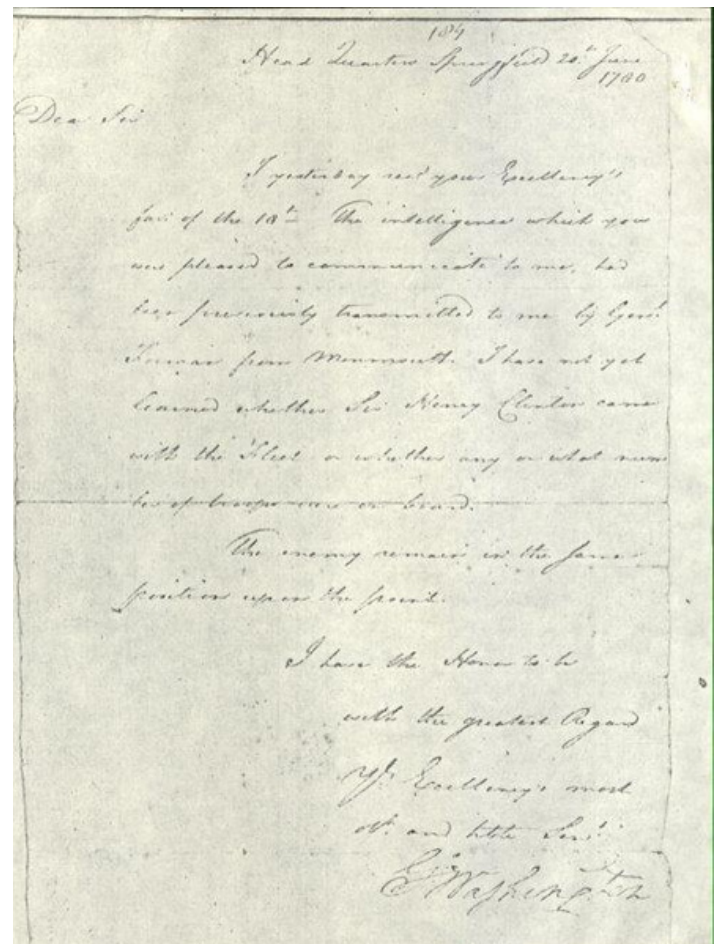 184
Head Quarters Springfield 20th June
1780
Dear Sir
I yesterday recd your Excellency's
favr of the 18th The intelligence which you
were pleased to communicate to me, had
been previously transmitted to me by Genl
Forman from Monmouth. I have not yet
learned whether Sir Henry Clinton came
with the Fleet or whether any or what num
ber of troops were on board.
The enemy remain in the same
position upon the point.
I have the Honor to be
with the greatest Regard
Yr Excellency's most
Obt and hble Servt
Go Washington